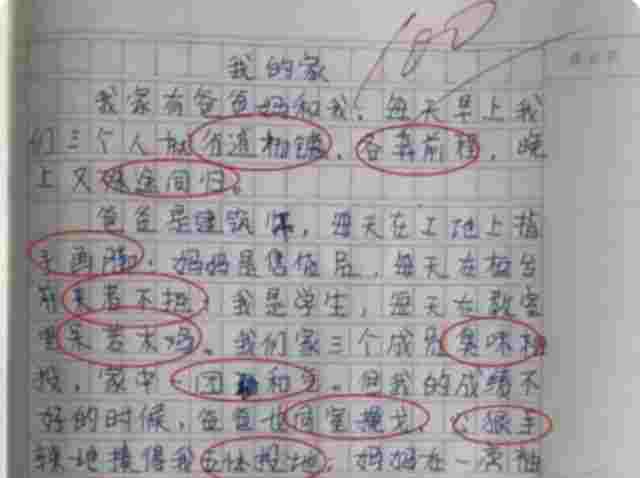 100
我的家
我家有爸爸妈和我，每天早上我
们三个人就分道扬镳，各奔前程，晚
上又殊途同归。
爸爸是建筑师，每天在工地上指
手画脚，妈妈是售货员，每天在柜台
前来者不拒，我是学生，每天在教室
里呆若木鸡。我们家三个成员臭味相
投，家中一团和气。但我的成绩不
好的时候，爸爸也同室操戈，心狠手
辣地揍得我五体投地，妈妈在一旁袖